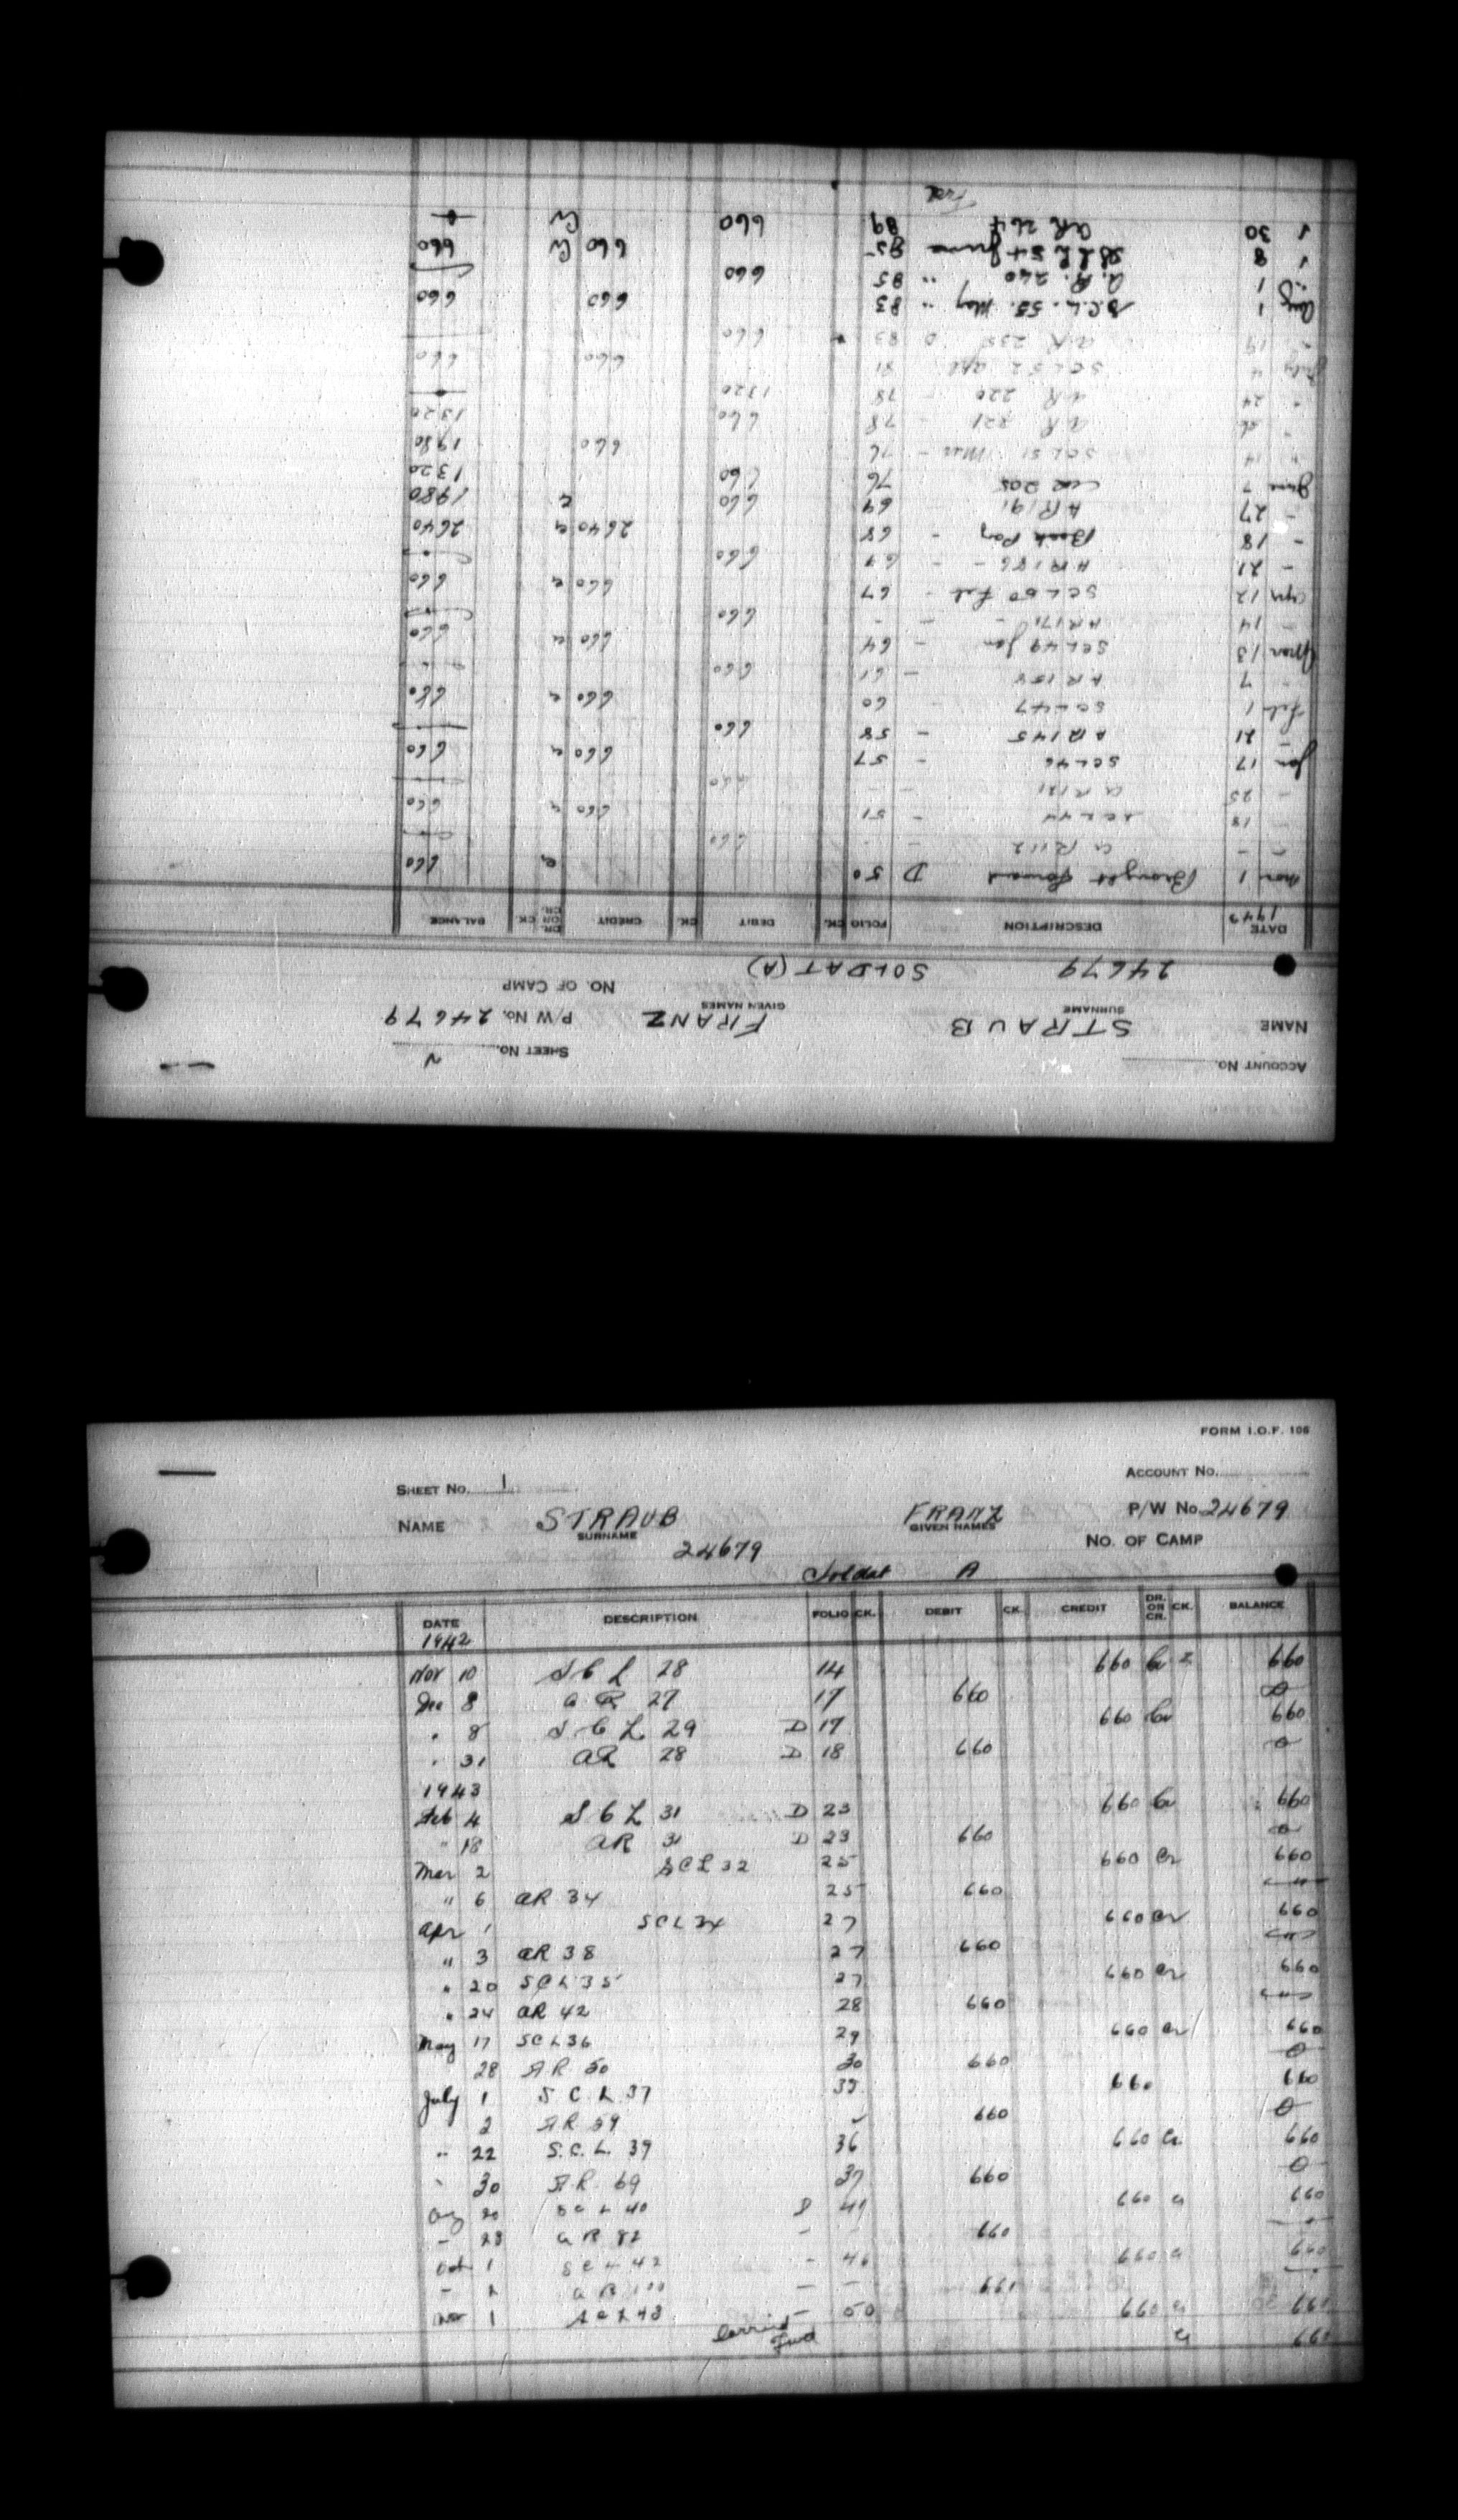 FORM I.O.F. 106
SHEET No. 1 ACCOUNT No.
NAME STRAUB FRANZ P/W No 24679
SURNAME GIVEN NAMES
24679 NO. OF CAMP
Soldat A
DATE DESCRIPTION FOLIO CK. DEBIT CK. CREDIT DR. OR CR. CK. BALANCE
1942
Nov 10 S C L 28 14 660 Cr 660
Dec 8 a R 27 17 660 0
" 8 S C L 29 D 17 660 Cr 660
" 31 AR 28 D 18 660 0
1943
Feb 4 S C L 31 D 23 660 Cr 660
" 18 AR 31 D 23 660 0
Mar 2 SCL 32 25 660 Cr 660
" 6 AR 34 25 660
Apr 1 SCL 34 27 660 Cr 660
" 3 AR 38 27 660
" 20 SCL 35 27 660 Cr 660
" 24 AR 42 28 660
May 17 SCL 36 29 660 Cr 660
28 AR 50 30 660 0
July 1 S C L 37 35 660 660
2 AR 59 660 0
" 22 S.C.L. 39 36 660 Cr. 660
" 30 AR. 69 37 660 0
Aug 20 SCL 40 41 660 660
- 28 a R 82 - 660
Oct 1 SCL 42 - 46 660 660
a R - -
Nov 1 SCL 43 - 50 660 660
Carried Fwd 660
ACCOUNT No. SHEET No.
NAME STRAUB FRANZ P/W No. 24679
SURNAME GIVEN NAMES
NO. OF CAMP
24679 SOLDAT (A)
DATE DESCRIPTION FOLIO CK. DEBIT CK. CREDIT DR. OR CR. CK. BALANCE
1943
Nov 1 Brought Forward D 50 660
- - a R 112 - 660
- 18 SCL 44 - 51 660 660
- 25 a R 121 - 660
Jan 17 SCL 46 - 57 660 660
- 21 AR 145 - 58 660
Feb 1 SCL 47 60 660 660
" 7 AR 158 - 61 660
Mar 13 SCL 49 Jan - 64 660 660
- 14 AR 171 - - 660
Apr 12 SCL 50 Feb - 67 660 660
- 21 AR 186 - - 67 660
- 18 Back Pay - 68 2640 2640
- 27 AR 191 69 660 1980
June 7 205 76 660 1320
" 14 SCL 51 Mar - 76 660 1980
a R 221 - 78 660 1320
" 24 a R 220 - 78 1320
July 4 SCL 52 Apl 81 660 660
" 19 a R 238 83 660
Aug 1 S.C.L. 53. May " 83 660 660
" 1 a. R. 240 " 85 660
1 8 SCL 54 June 85 660 Cr 660
1 30 AR 264 89 660 Cr
Fwd